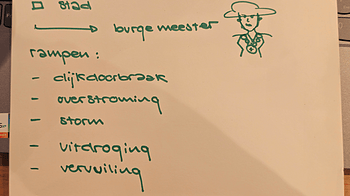 stad
burgemeester
rampen:
- dijkdoorbraak
- overstroming
- storm
- uitdroging
- vervuiling